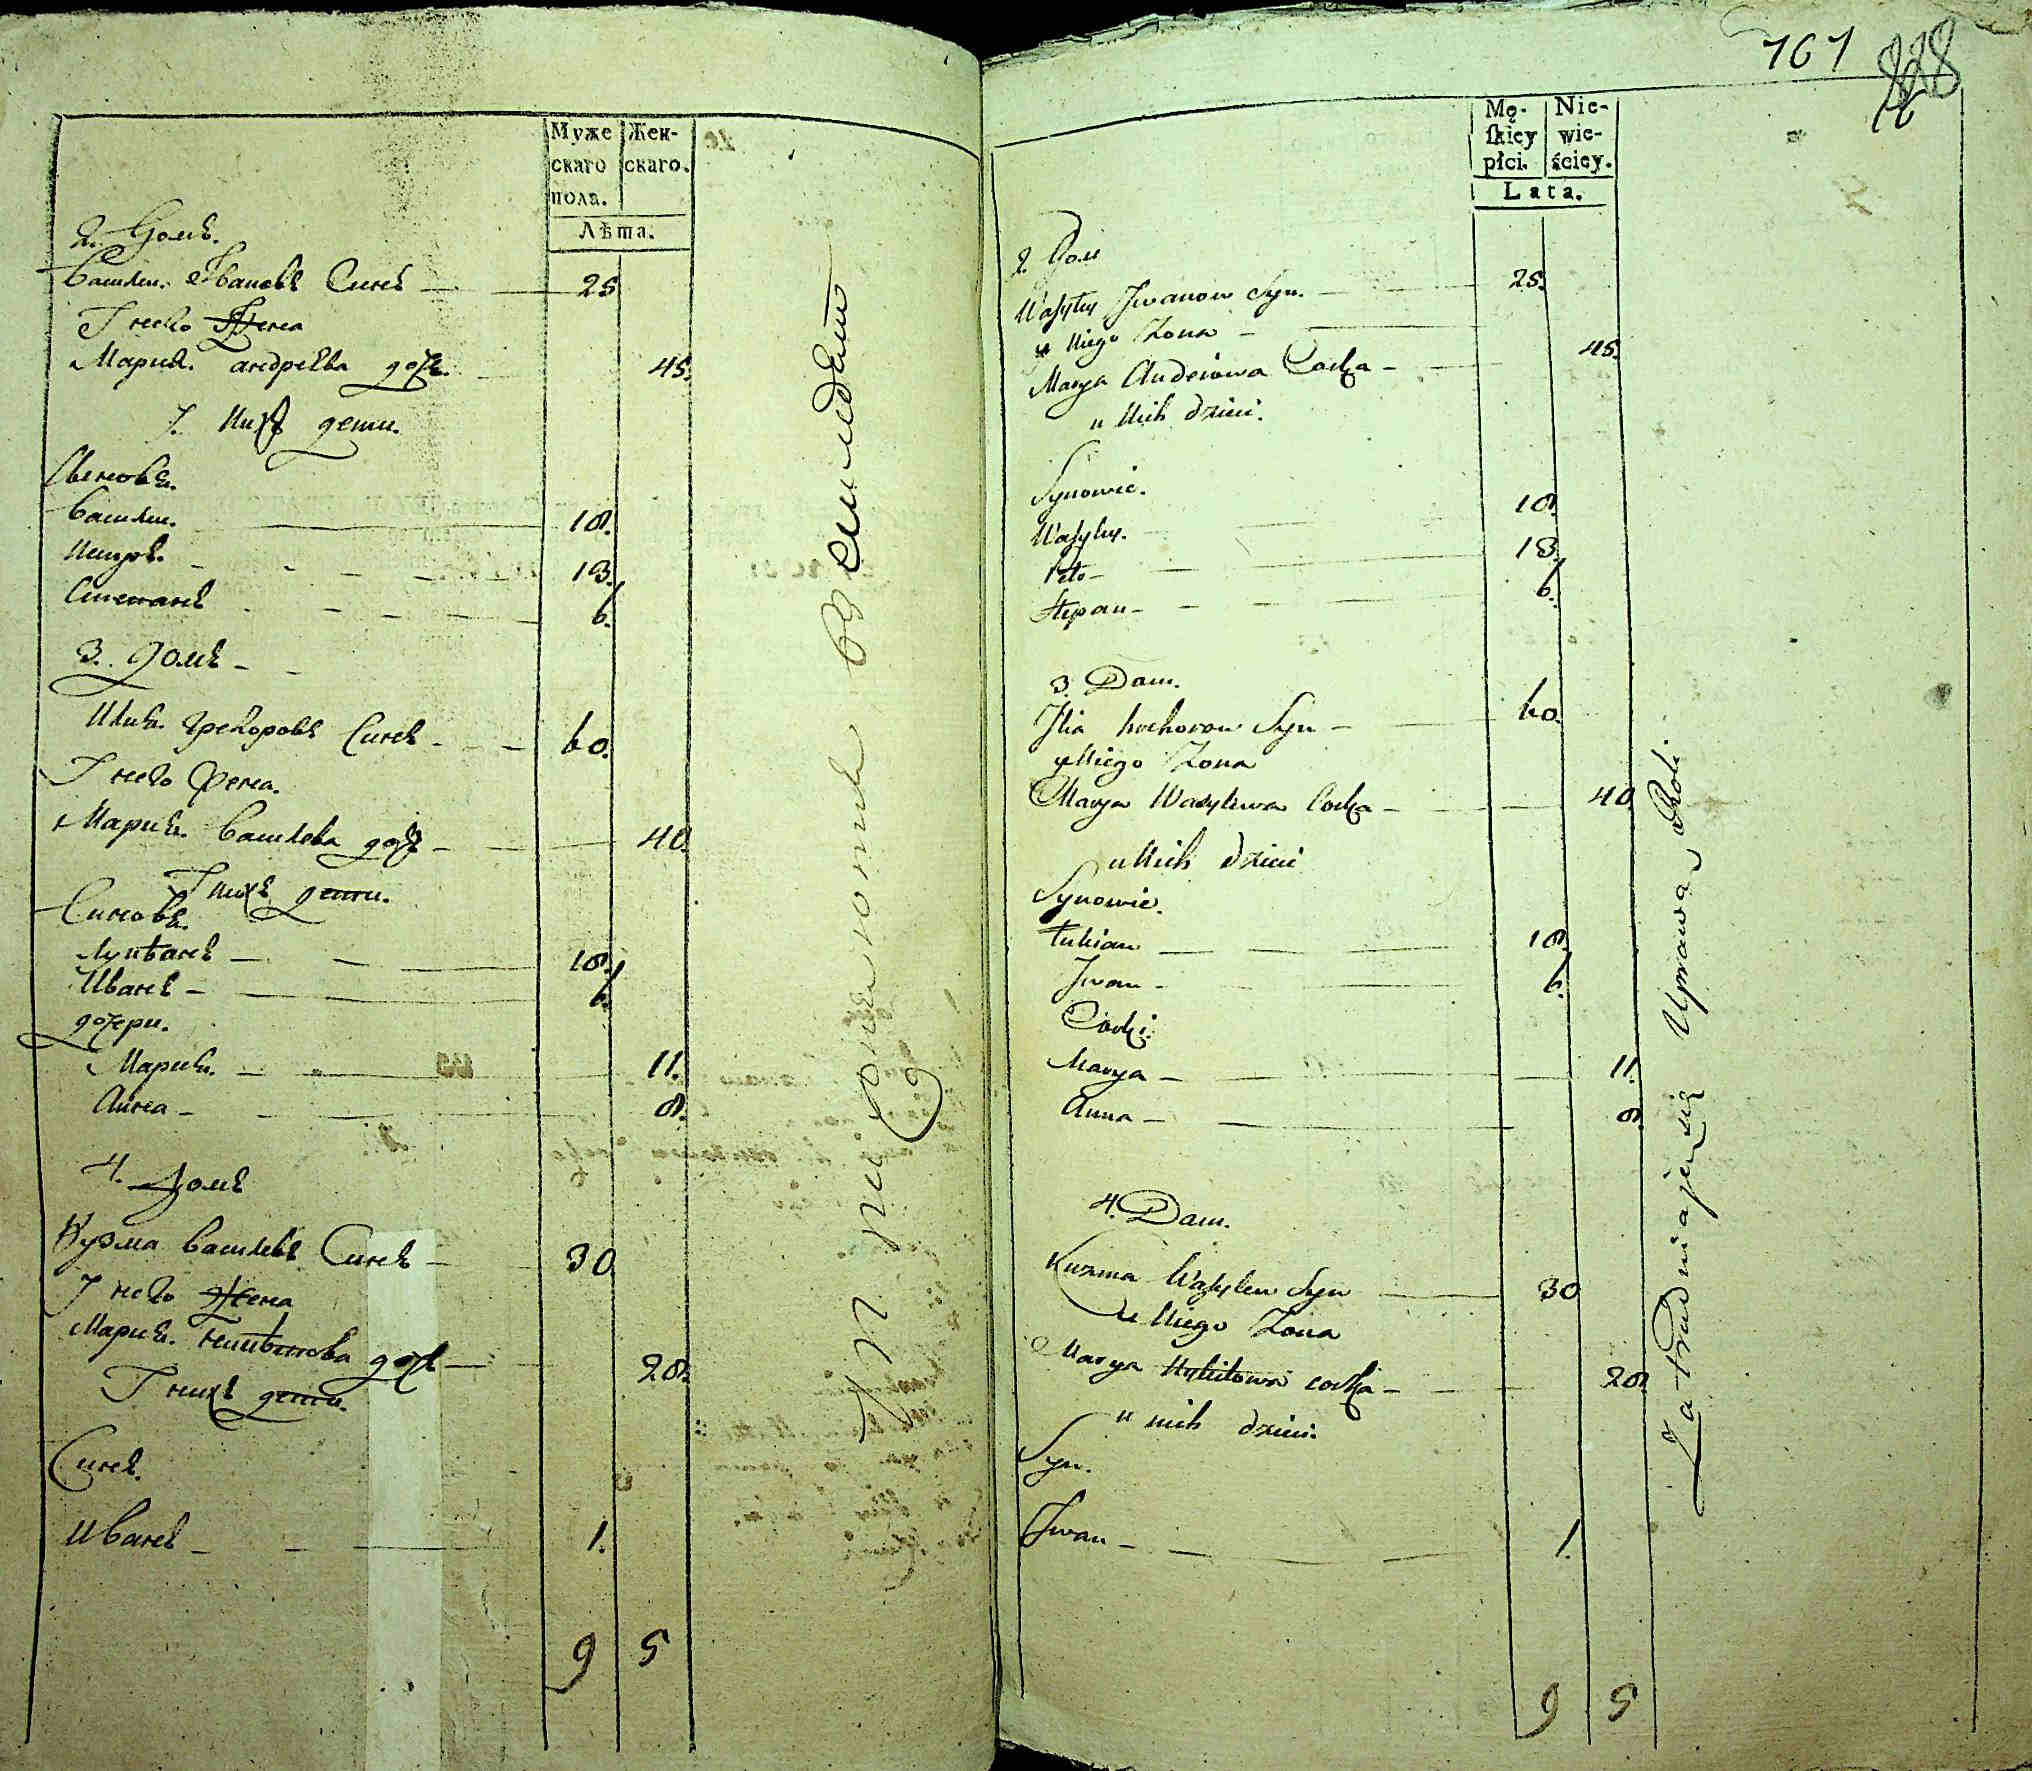 Муже
скаго
пола.
Жен-
скаго.
Лѣта.
2. Домъ.
Василы. Ивановъ Синъ 25
У него Жена
Мария. андреѣва дочъ. 45.
У. Нихъ дети.
Синовья.
Василы. 18.
Петръ. 13.
Степанъ 6.
3. Домъ
Илия. Грегоровъ Синъ 60.
У него Жена.
Мария. Василева дочъ 40.
У нихъ дети.
Синовя.
Лукѣанъ 18.
Иванъ 6.
дочери.
Мария. 11.
Анна 8.
4. Домъ
Кузма Василевъ Синъ 30
У него Жена
Мария. никѣтова дочъ 28.
У нихъ дети.
Синъ.
Иванъ 1.
9 5
161
Mę-
ſkiey
płci.
Nie-
wie-
ściey.
Lata.
2. Dom
Wasyły Jwanow Syn. 25.
u Niego Zona
Marya Andeiowa Corka 45.
u Nich dzieci.
Synowie.
Wasyły. 18.
Petr 13.
Stepan 6.
3. Dom.
Jlia hrehorow Syn 60.
u Niego Zona
Marya Wasylewa Corka 40.
u Nich dzieci
Synowie.
Łukian 18.
Jwan 6.
Corki.
Marya 11.
Anna 8.
4. Dom.
Kuzma Wasylew Syn 30
u Niego Zona
Marya Nykitowa corka 28.
u nich dzieci.
Syn.
Jwan 1.
9 5
Zatrudniaje się Uprawą Roli